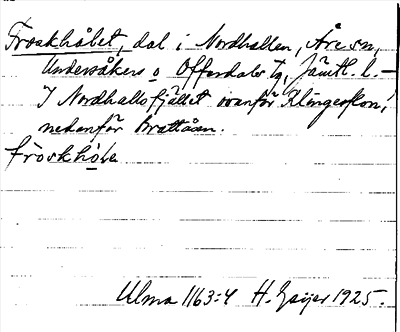 Froskhålet, dal i Nordhallen, Åre sn,
Undersåkers o Offerdals tg, Jämtl. l. —
I Nordhallsfjället ovanför Klingerskon,
nedanför Brattåsen.
fròskhòłe
Ulma 1163:4 H. Geijer 1925.